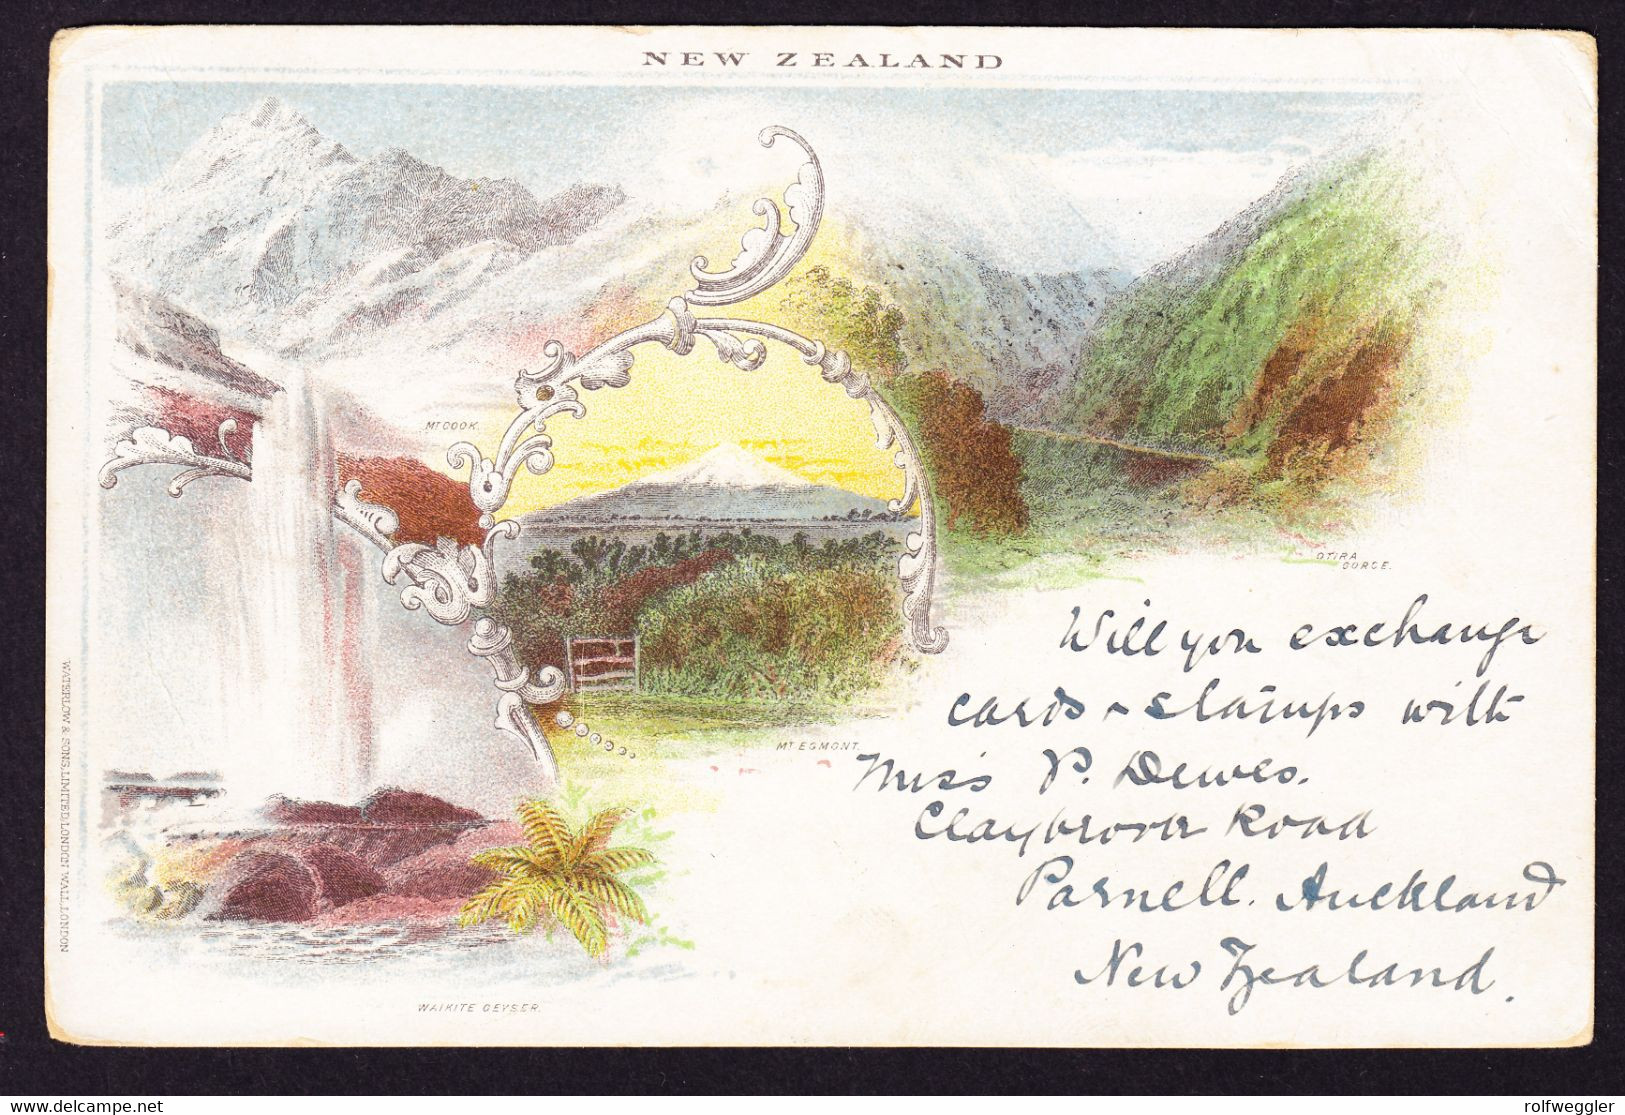 NEW ZEALAND
MT COOK.
OTIRA
GORGE.
MT EGMONT.
WAIKITE GEYSER.
WATERLOW & SONS, LIMITED, LONDON WALL, LONDON
Will you exchange
cards & stamps with
Miss P. Dewes.
Claybrook Road
Parnell. Auckland
New Zealand.
delcampe.net
rolfweggler